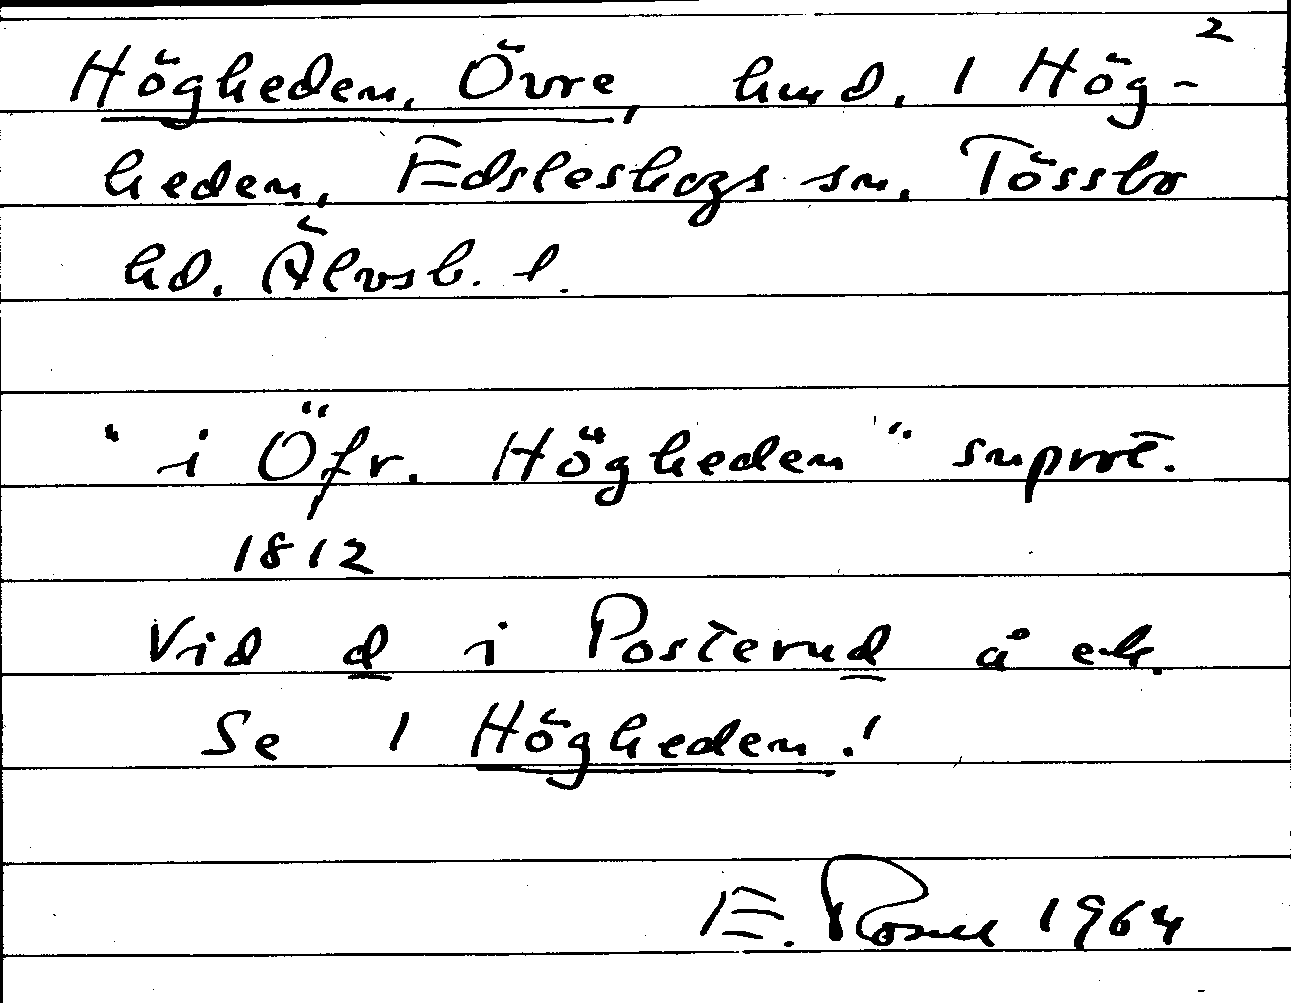 2
Högheden, Övre, hmd. 1 Hög-
heden, Edsleskogs sn, Tössbo
hd. Älvsb. l.
"i Öfr. Högheden". snprot.
1812
Vid d i Posterud å ek.
Se 1 Högheden!
E. 1964